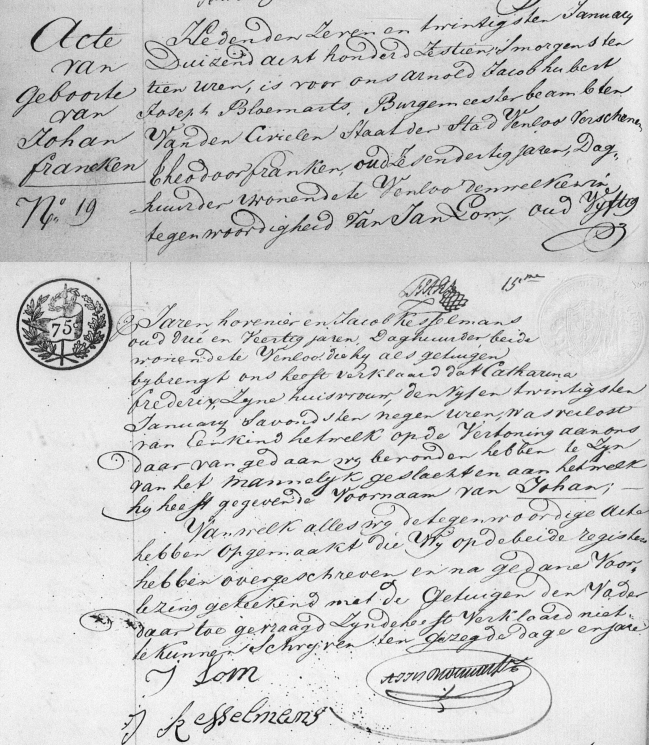 Acte
van
Geboorte
van
Johan
francken
No. 19
Heden den Zeven en twintigsten January
Duizend acht honderd Zestien, 's morgens ten
tien uren, is voor ons Arnold Jacob hubert
Joseph Bloemarts, Burgemeester beambten
Van den Civielen Staat der Stad Venloo Verschenen
theodoor franken, oud Zesendertig jaren, Dag-
huurder wonende te Venloo denwelken in
tegenwoordigheid Van Jan Lom, oud Vyftig
15me
75
Jaren, hovenier en Jacob Kesselmans
oud drie en Veertig jaren, Daghuurder beide
wonende te Venloo, die hy als getuigen
bybrengt ons heeft verklaard dat Catharina
frederix, Zyne huisvrouw, den Vyfen twintigsten
January 's avonds ten negen uren, was verlost
van Een kind hetwelk op de Vertoning aan ons
daar van gedaan wy bevonden hebben te Zyn
van het mannelyk geslacht en aan hetwelk
hy heeft gegeven de Voornaam van Johan;
Van welk alles wy de tegenwoordige Acte
hebben opgemaakt die Wy op de beide registers
hebben overgeschreven en na gedane Voor-
lezing geteekend met de Getuigen den Vader
daar toe gevraagd Zynde heeft Verklaard niet
te kunnen Schryven ten gezegde dage en jare
J Lom
J Kesselmans